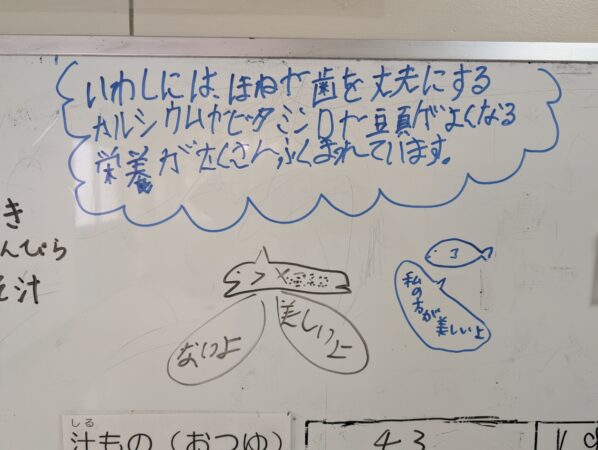 いわしには、ほねや歯を丈夫にする
カルシウムやビタミンDや頭がよくなる
栄養がたくさんふくまれています。
き
んぴら
そ汁
ないよ
美しいよ
私の方が
美しいよ
しる
汁もの（おつゆ）
43